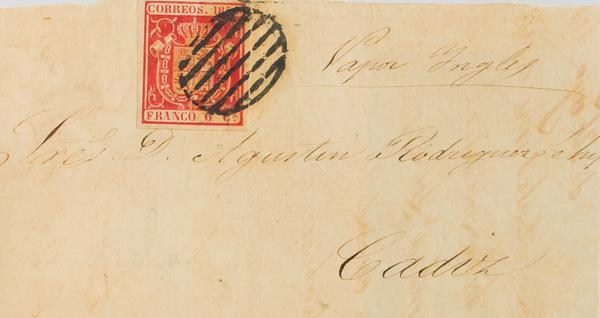 CORREOS. 185
FRANCO 6 C.
Vapor Ingles
Sres. D. Agustin Rodriguez
Cadiz